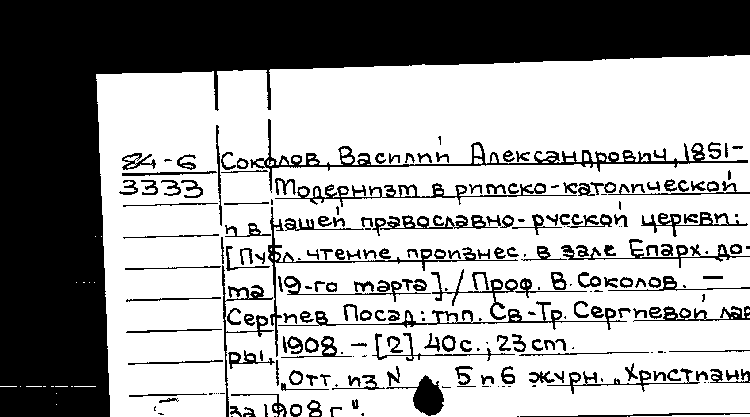 84-6 Соколов, Василий Александрович, 1851-
3333 Модернизм в римско-католической
и в нашей православно-русской церкви:
[Публ. чтение, произнес. в зале Епарх. до-
ма 19-го марта]. / Проф. В. Соколов. —
Сергиев Посад: тип. Св-Тр. Сергиевой лав
ры, 1908. – [2], 40 с.; 23 cm.
„Отт. из N 5 и 6 журн. „Христиан
за 1908 г".